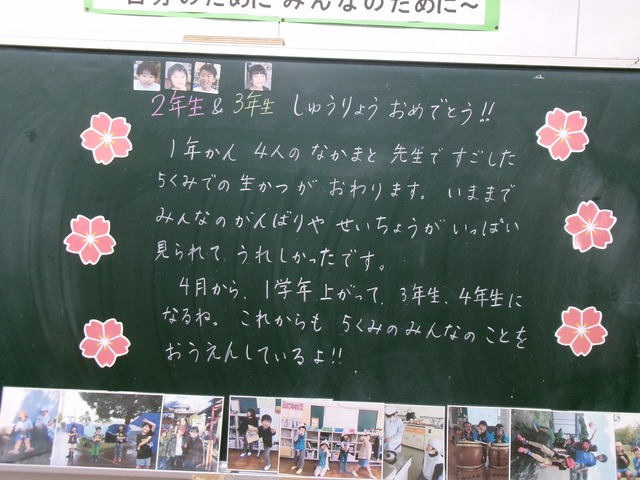 自分のために みんなのために～
2年生 & 3年生 しゅうりょう おめでとう!!
1年かん 4人の なかまと 先生で すごした
5くみでの 生かつが おわります。 いままで
みんなのがんばりや せいちょうが いっぱい
見られて、うれしかったです。
4月から、1学年上がって、3年生、4年生に
なるね。 これからも 5くみのみんなのことを
おうえんしているよ!!